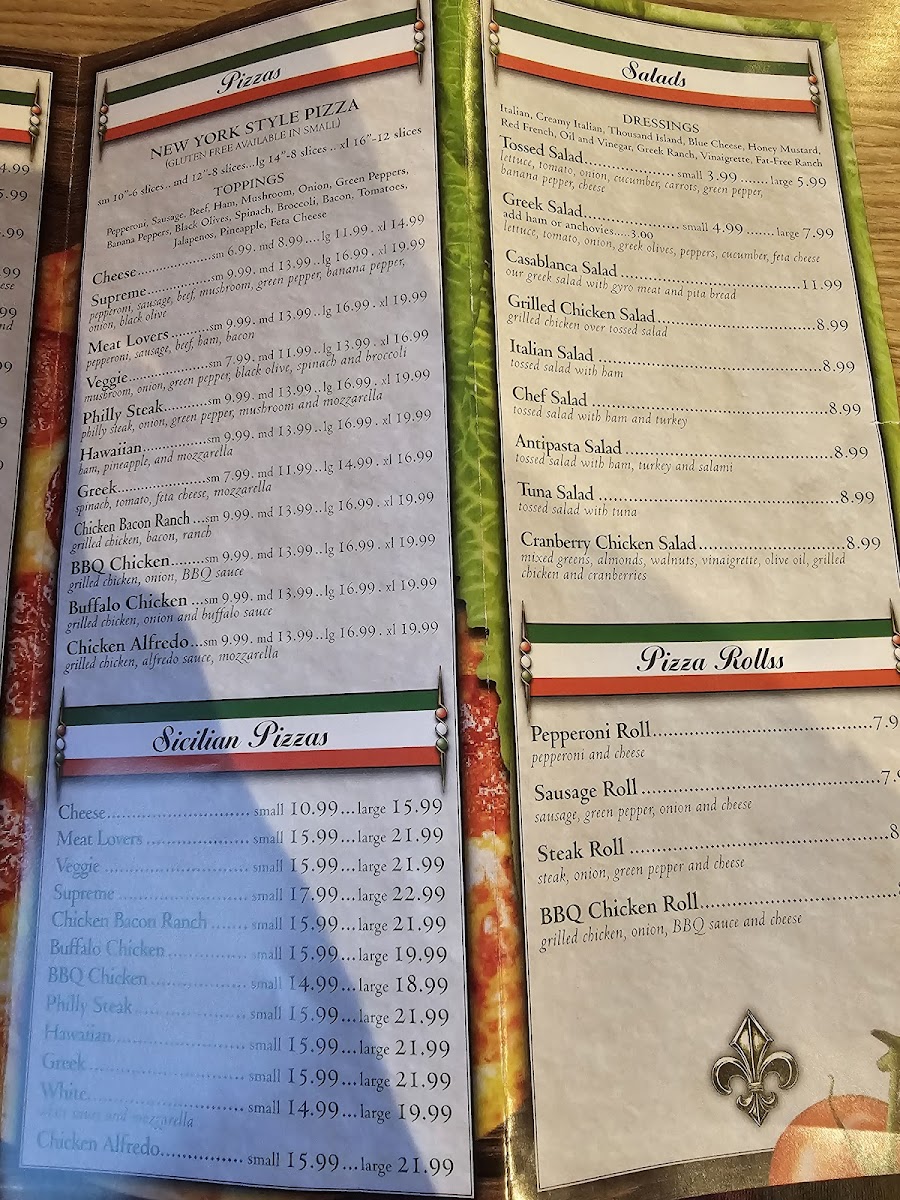 4.99
5.99
.99
99
ese
99
nd
99
9
9
Pizzas
NEW YORK STYLE PIZZA
(GLUTEN FREE AVAILABLE IN SMALL)
sm 10"-6 slices.. md 12"-8 slices...lg 14"-8 slices .. xl 16"-12 slices
TOPPINGS
Pepperoni, Sausage, Beef, Ham, Mushroom, Onion, Green Peppers,
Banana Peppers, Black Olives, Spinach, Broccoli, Bacon, Tomatoes,
Jalapenos, Pineapple, Feta Cheese
Cheese....................sm 6.99. md 8.99....lg 11.99. xl 14.99
Supreme................sm 9.99. md 13.99..lg 16.99. xl 19.99
pepperoni, sausage, beef, mushroom, green pepper, banana pepper,
onion, black olive
Meat Lovers.........sm 9.99. md 13.99..lg 16.99. xl 19.99
pepperoni, sausage, beef, ham, bacon
Veggie.....................sm 7.99. md 11.99..lg 13.99. xl 16.99
mushroom, onion, green pepper, black olive, spinach and broccoli
Philly Steak..........sm 9.99. md 13.99..lg 16.99. xl 19.99
philly steak, onion, green pepper, mushroom and mozzarella
Hawaiian...............sm 9.99. md 13.99..lg 16.99. xl 19.99
ham, pineapple, and mozzarella
Greek.....................sm 7.99. md 11.99..lg 14.99. xl 16.99
spinach, tomato, feta cheese, mozzarella
Chicken Bacon Ranch ...sm 9.99. md 13.99..lg 16.99. xl 19.99
grilled chicken, bacon, ranch
BBQ Chicken........sm 9.99. md 13.99..lg 16.99. xl 19.99
grilled chicken, onion, BBQ sauce
Buffalo Chicken ...sm 9.99. md 13.99..lg 16.99. xl 19.99
grilled chicken, onion and buffalo sauce
Chicken Alfredo...sm 9.99. md 13.99..lg 16.99. xl 19.99
grilled chicken, alfredo sauce, mozzarella
Sicilian Pizzas
Cheese.............................. small 10.99...large 15.99
Meat Lovers ...................... small 15.99...large 21.99
Veggie ............................... small 15.99...large 21.99
Supreme ............................ small 17.99...large 22.99
Chicken Bacon Ranch ......... small 15.99...large 21.99
Buffalo Chicken .................. small 15.99...large 19.99
BBQ Chicken ...................... small 14.99...large 18.99
Philly Steak ........................ small 15.99...large 21.99
Hawaiian............................ small 15.99...large 21.99
Greek ................................. small 15.99...large 21.99
White.................................. small 14.99...large 19.99
and mozzarella
Chicken Alfredo................ small 15.99...large 21.99
Salads
DRESSINGS
Italian, Creamy Italian, Thousand Island, Blue Cheese, Honey Mustard,
Red French, Oil and Vinegar, Greek Ranch, Vinaigrette, Fat-Free Ranch
Tossed Salad.................... small 3.99 ....... large 5.99
lettuce, tomato, onion, cucumber, carrots, green pepper,
banana pepper, cheese
Greek Salad...................... small 4.99 ....... large 7.99
add ham or anchovies.....3.00
lettuce, tomato, onion, greek olives, peppers, cucumber, feta cheese
Casablanca Salad ........................................11.99
our greek salad with gyro meat and pita bread
Grilled Chicken Salad..................................8.99
grilled chicken over tossed salad
Italian Salad ..................................................8.99
tossed salad with ham
Chef Salad .....................................................8.99
tossed salad with ham and turkey
Antipasta Salad .............................................8.99
tossed salad with ham, turkey and salami
Tuna Salad .....................................................8.99
tossed salad with tuna
Cranberry Chicken Salad................................8.99
mixed greens, almonds, walnuts, vinaigrette, olive oil, grilled
chicken and cranberries
Pizza Rollss
Pepperoni Roll................................................7.9
pepperoni and cheese
Sausage Roll ....................................................7.9
sausage, green pepper, onion and cheese
Steak Roll .......................................................8
steak, onion, green pepper and cheese
BBQ Chicken Roll..........................................
grilled chicken, onion, BBQ sauce and cheese